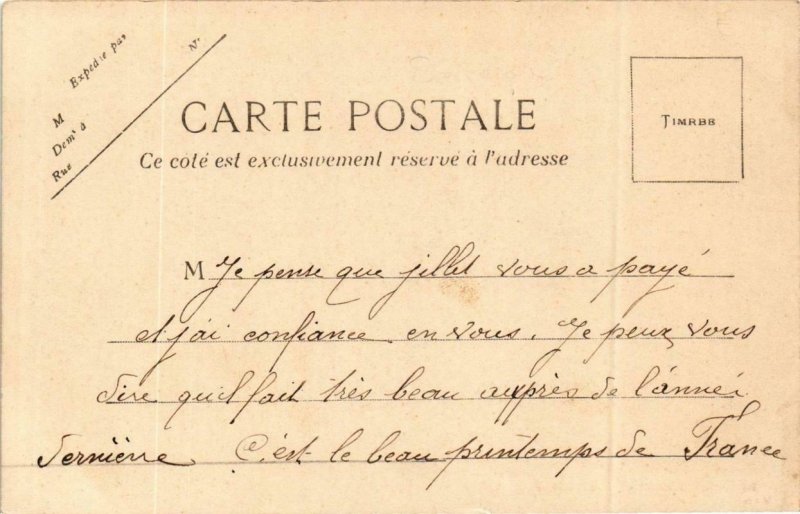 Expédié par
M
Demt à
Rue
No
CARTE POSTALE
Ce coté est exclusivement réservé à l'adresse
TIMRBE
M Je pense que jillet vous a payé
et j'ai confiance en vous. Je peux vous
dire qu'il fait très beau auprès de l'année
dernière. C'est le beau printemps de France